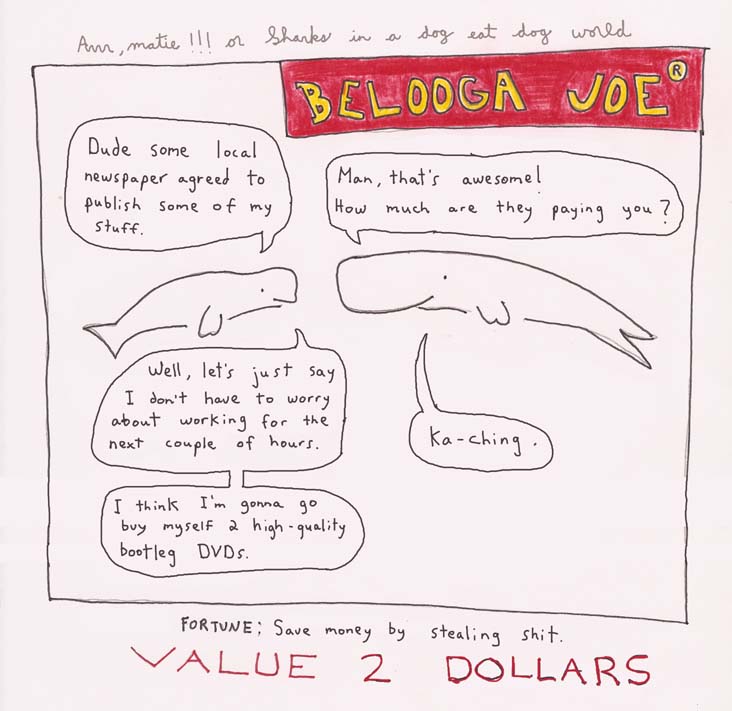 Arrr, matie!!! or Sharks in a dog eat dog world
BELOOGA JOE®
Dude some local
newspaper agreed to
publish some of my
stuff.
Man, that's awesome!
How much are they paying you?
Well, let's just say
I don't have to worry
about working for the
next couple of hours.
Ka-ching.
I think I'm gonna go
buy myself 2 high-quality
bootleg DVDs.
FORTUNE; Save money by stealing shit.
VALUE 2 DOLLARS